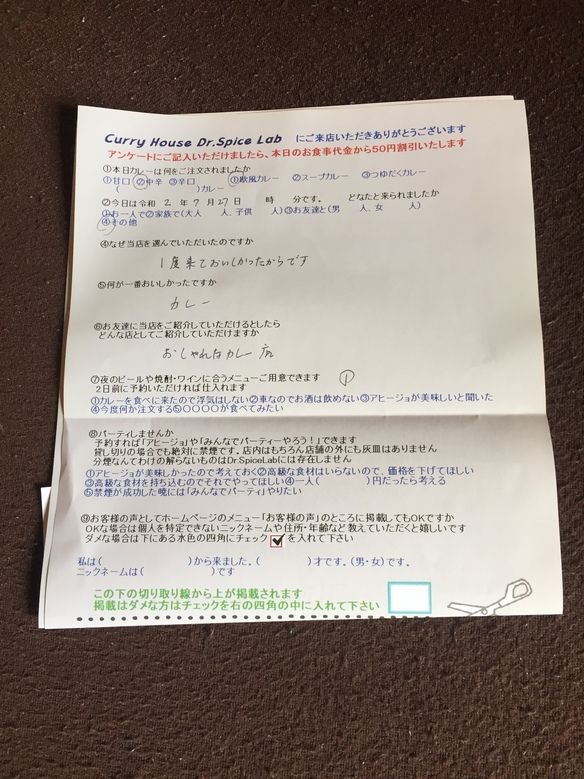 Curry House Dr.Spice Lab にご来店いただきありがとうございます
アンケートにご記入いただけましたら、本日のお食事代金から50円割引いたします
①本日カレーは何をご注文されましたか
①甘口 ②中辛 ③辛口 ①欧風カレー ②スープカレー ③つゆだくカレー
( )カレー
②今日は令和 2 年 9 月 27日 時 分です。 どなたと来られましたか
①お一人で②家族で(大人 人、子供 人)③お友達と(男 人、女 人)
④その他
④なぜ当店を選んでいただいたのですか
1度来ておいしかったからです
⑤何が一番おいしかったですか
カレー
⑥お友達に当店をご紹介していただけるとしたら
どんな店としてご紹介していただけますか
おしゃれなカレー店
⑦夜のビールや焼酎・ワインに合うメニューご用意できます ①
2日前に予約いただければ仕入れます
①カレーを食べに来たので浮気はしない②車なのでお酒は飲めない③アヒージョが美味しいと聞いた
④今度何か注文する⑤〇〇〇〇が食べてみたい
⑧パーティしませんか
予約すれば「アヒージョ」や「みんなでパーティーやろう!」できます
貸し切りの場合でも絶対に禁煙です。店内はもちろん店舗の外にも灰皿はありません
分煙なんてわけの解らないものはDr.SpiceLabには存在しません
①アヒージョが美味しかったので考えておく②高級な食材はいらないので、価格を下げてほしい
③高級な食材を持ち込むのでそれでやってほしい④一人( )円だったら考える
⑤禁煙が成功した暁には「みんなでパーティ」やりたい
⑨お客様の声としてホームページのメニュー「お客様の声」のところに掲載してもOKですか
OKな場合は個人を特定できないニックネームや住所・年齢など教えていただくと嬉しいです
ダメな場合は下にある水色の四角にチェック を入れて下さい
私は( )から来ました。( )才です。(男・女)です。
ニックネームは( )です
この下の切り取り線から上が掲載されます
掲載はダメな方はチェックを右の四角の中に入れて下さい